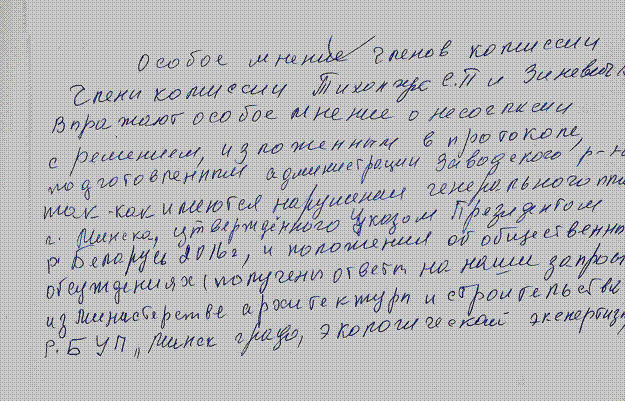 Особое мнение членов комиссии
Члены комиссии Тихон С.П и Зиневич
Выражают особое мнение о несогласии
с решением, изложенным в протоколе,
подготовленным администрации Заводского р-н
так-как имеются нарушения генерального
г. Минска, утверждённого Указом Президентом
р. Беларусь 2016г, и положения об общественны
обсуждениях (получены ответы на наши запросы
из министерстве архитектуры и строительства
Р.Б УП „Минск градо, экологической экспертизы,